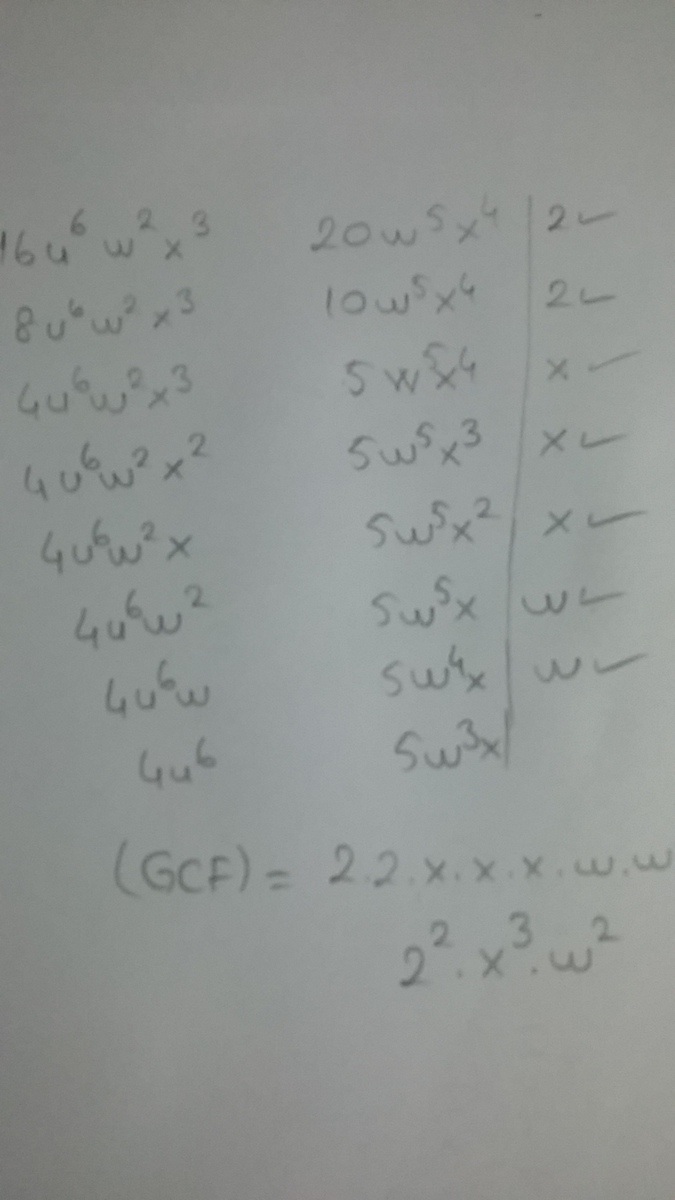 16u⁶w²x³ 20w⁵x⁴ | 2 ✓
8u⁶w²x³ 10w⁵x⁴ | 2 ✓
4u⁶w²x³ 5w⁵x⁴ | x ✓
4u⁶w²x² 5w⁵x³ | x ✓
4u⁶w²x 5w⁵x² | x ✓
4u⁶w² 5w⁵x | w ✓
4u⁶w 5w⁴x | w ✓
4u⁶ 5w³x |
(GCF) = 2.2.x.x.x.w.w
2².x³.w²